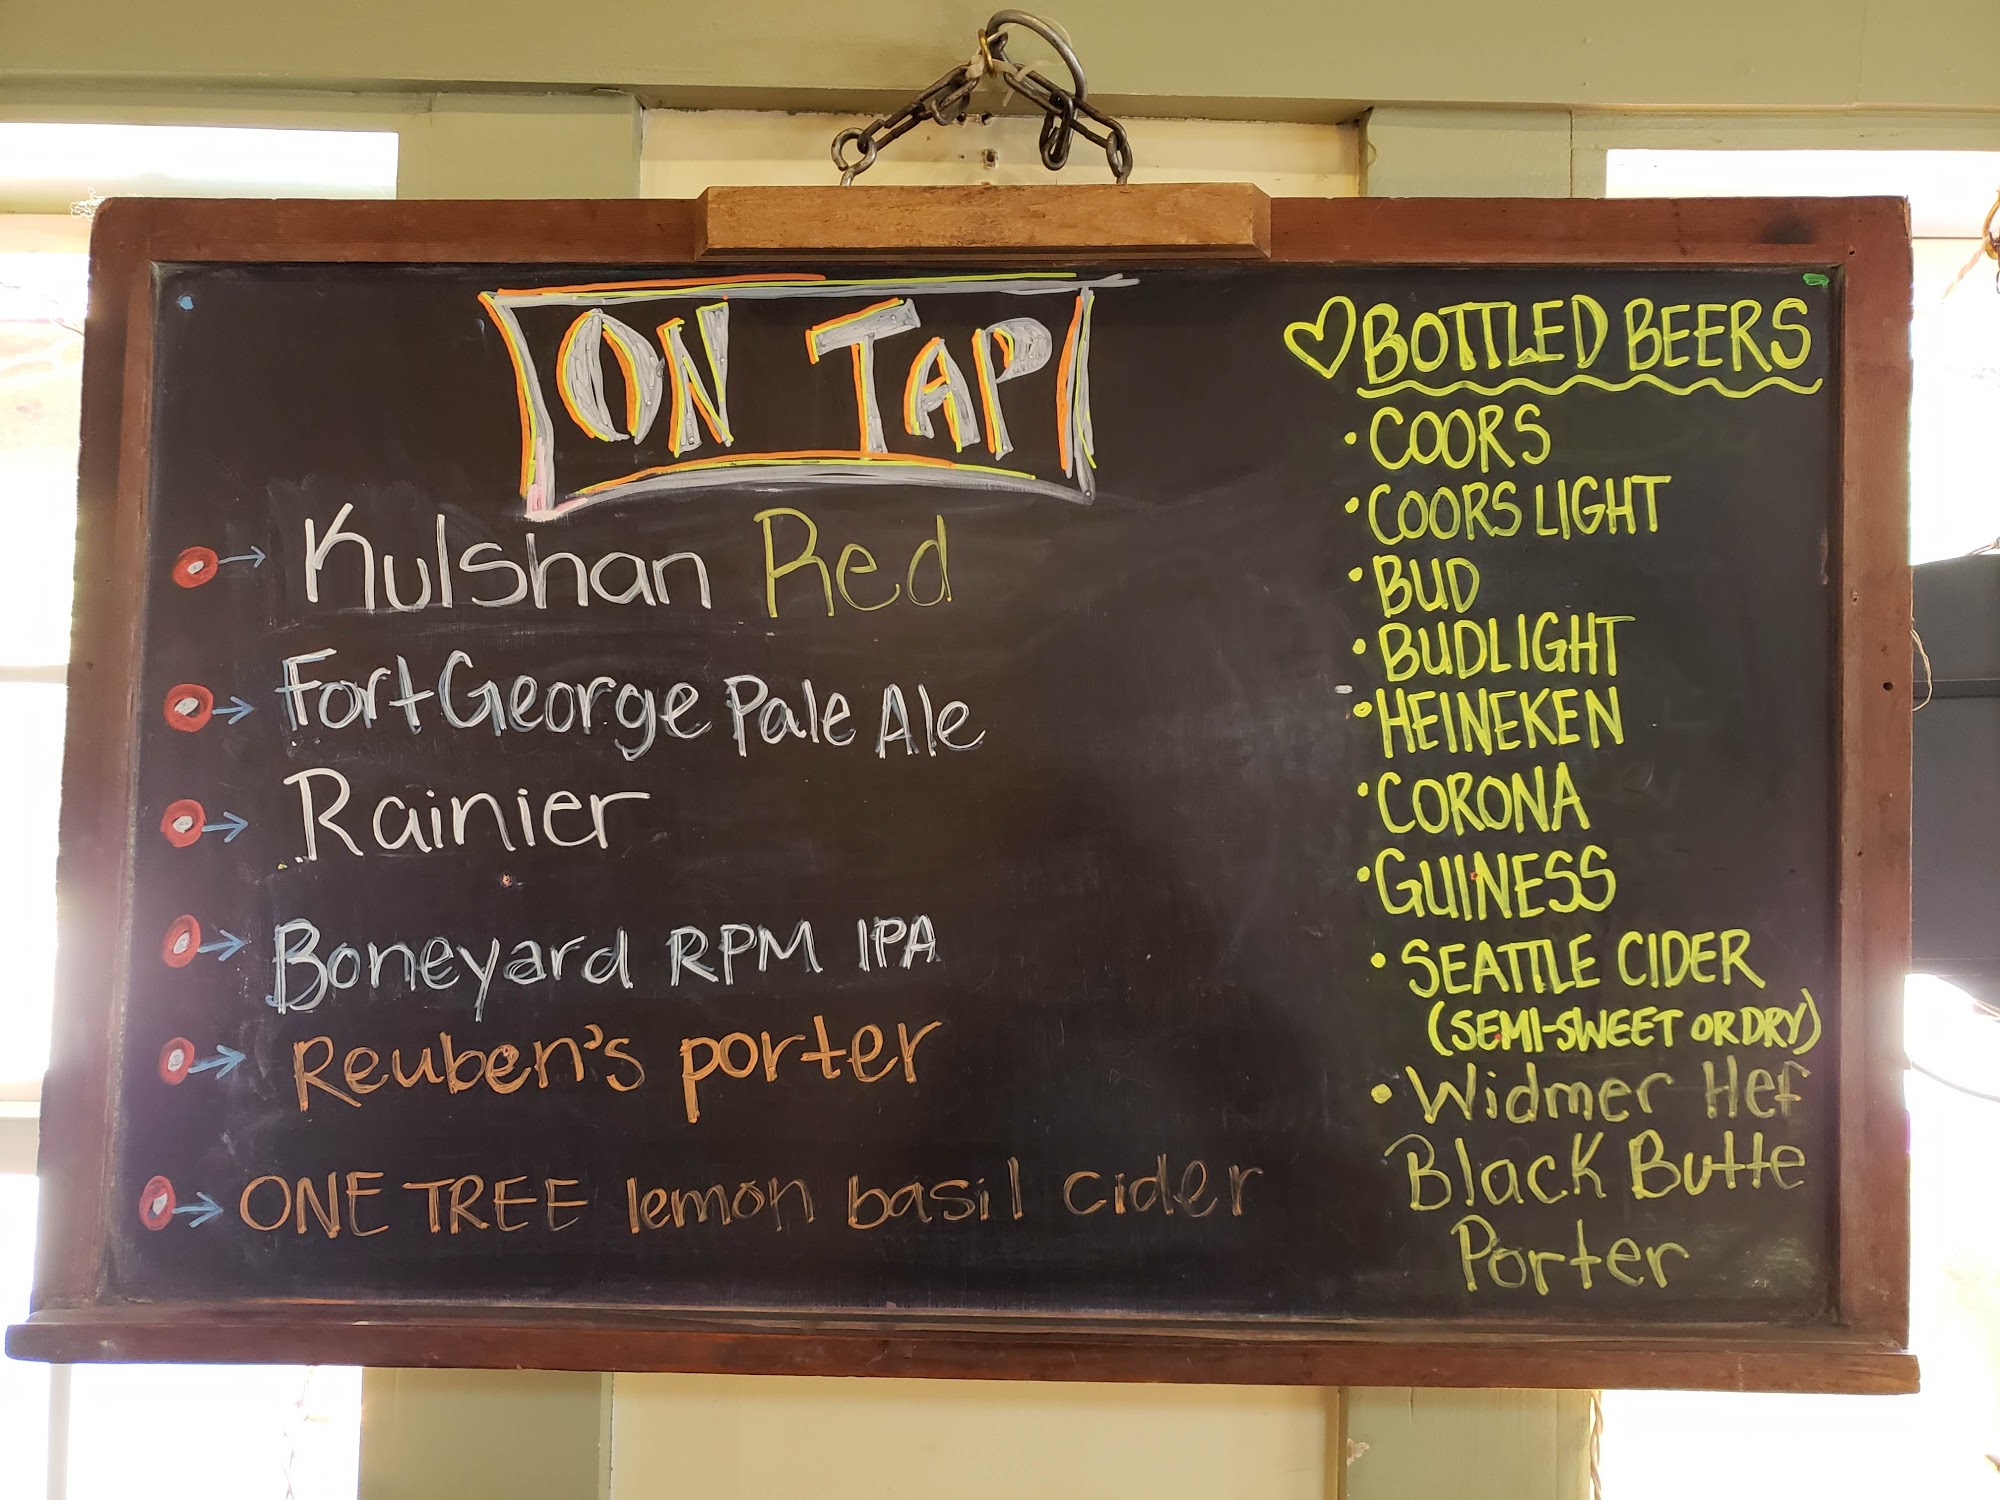 ON TAP
Kulshan Red
Fort George Pale Ale
Rainier
Boneyard RPM IPA
Reuben's porter
ONE TREE lemon basil cider
BOTTLED BEERS
• COORS
• COORS LIGHT
• BUD
• BUDLIGHT
• HEINEKEN
• CORONA
• GUINESS
• SEATTLE CIDER
(SEMI-SWEET OR DRY)
• Widmer Hef
Black Butte
Porter